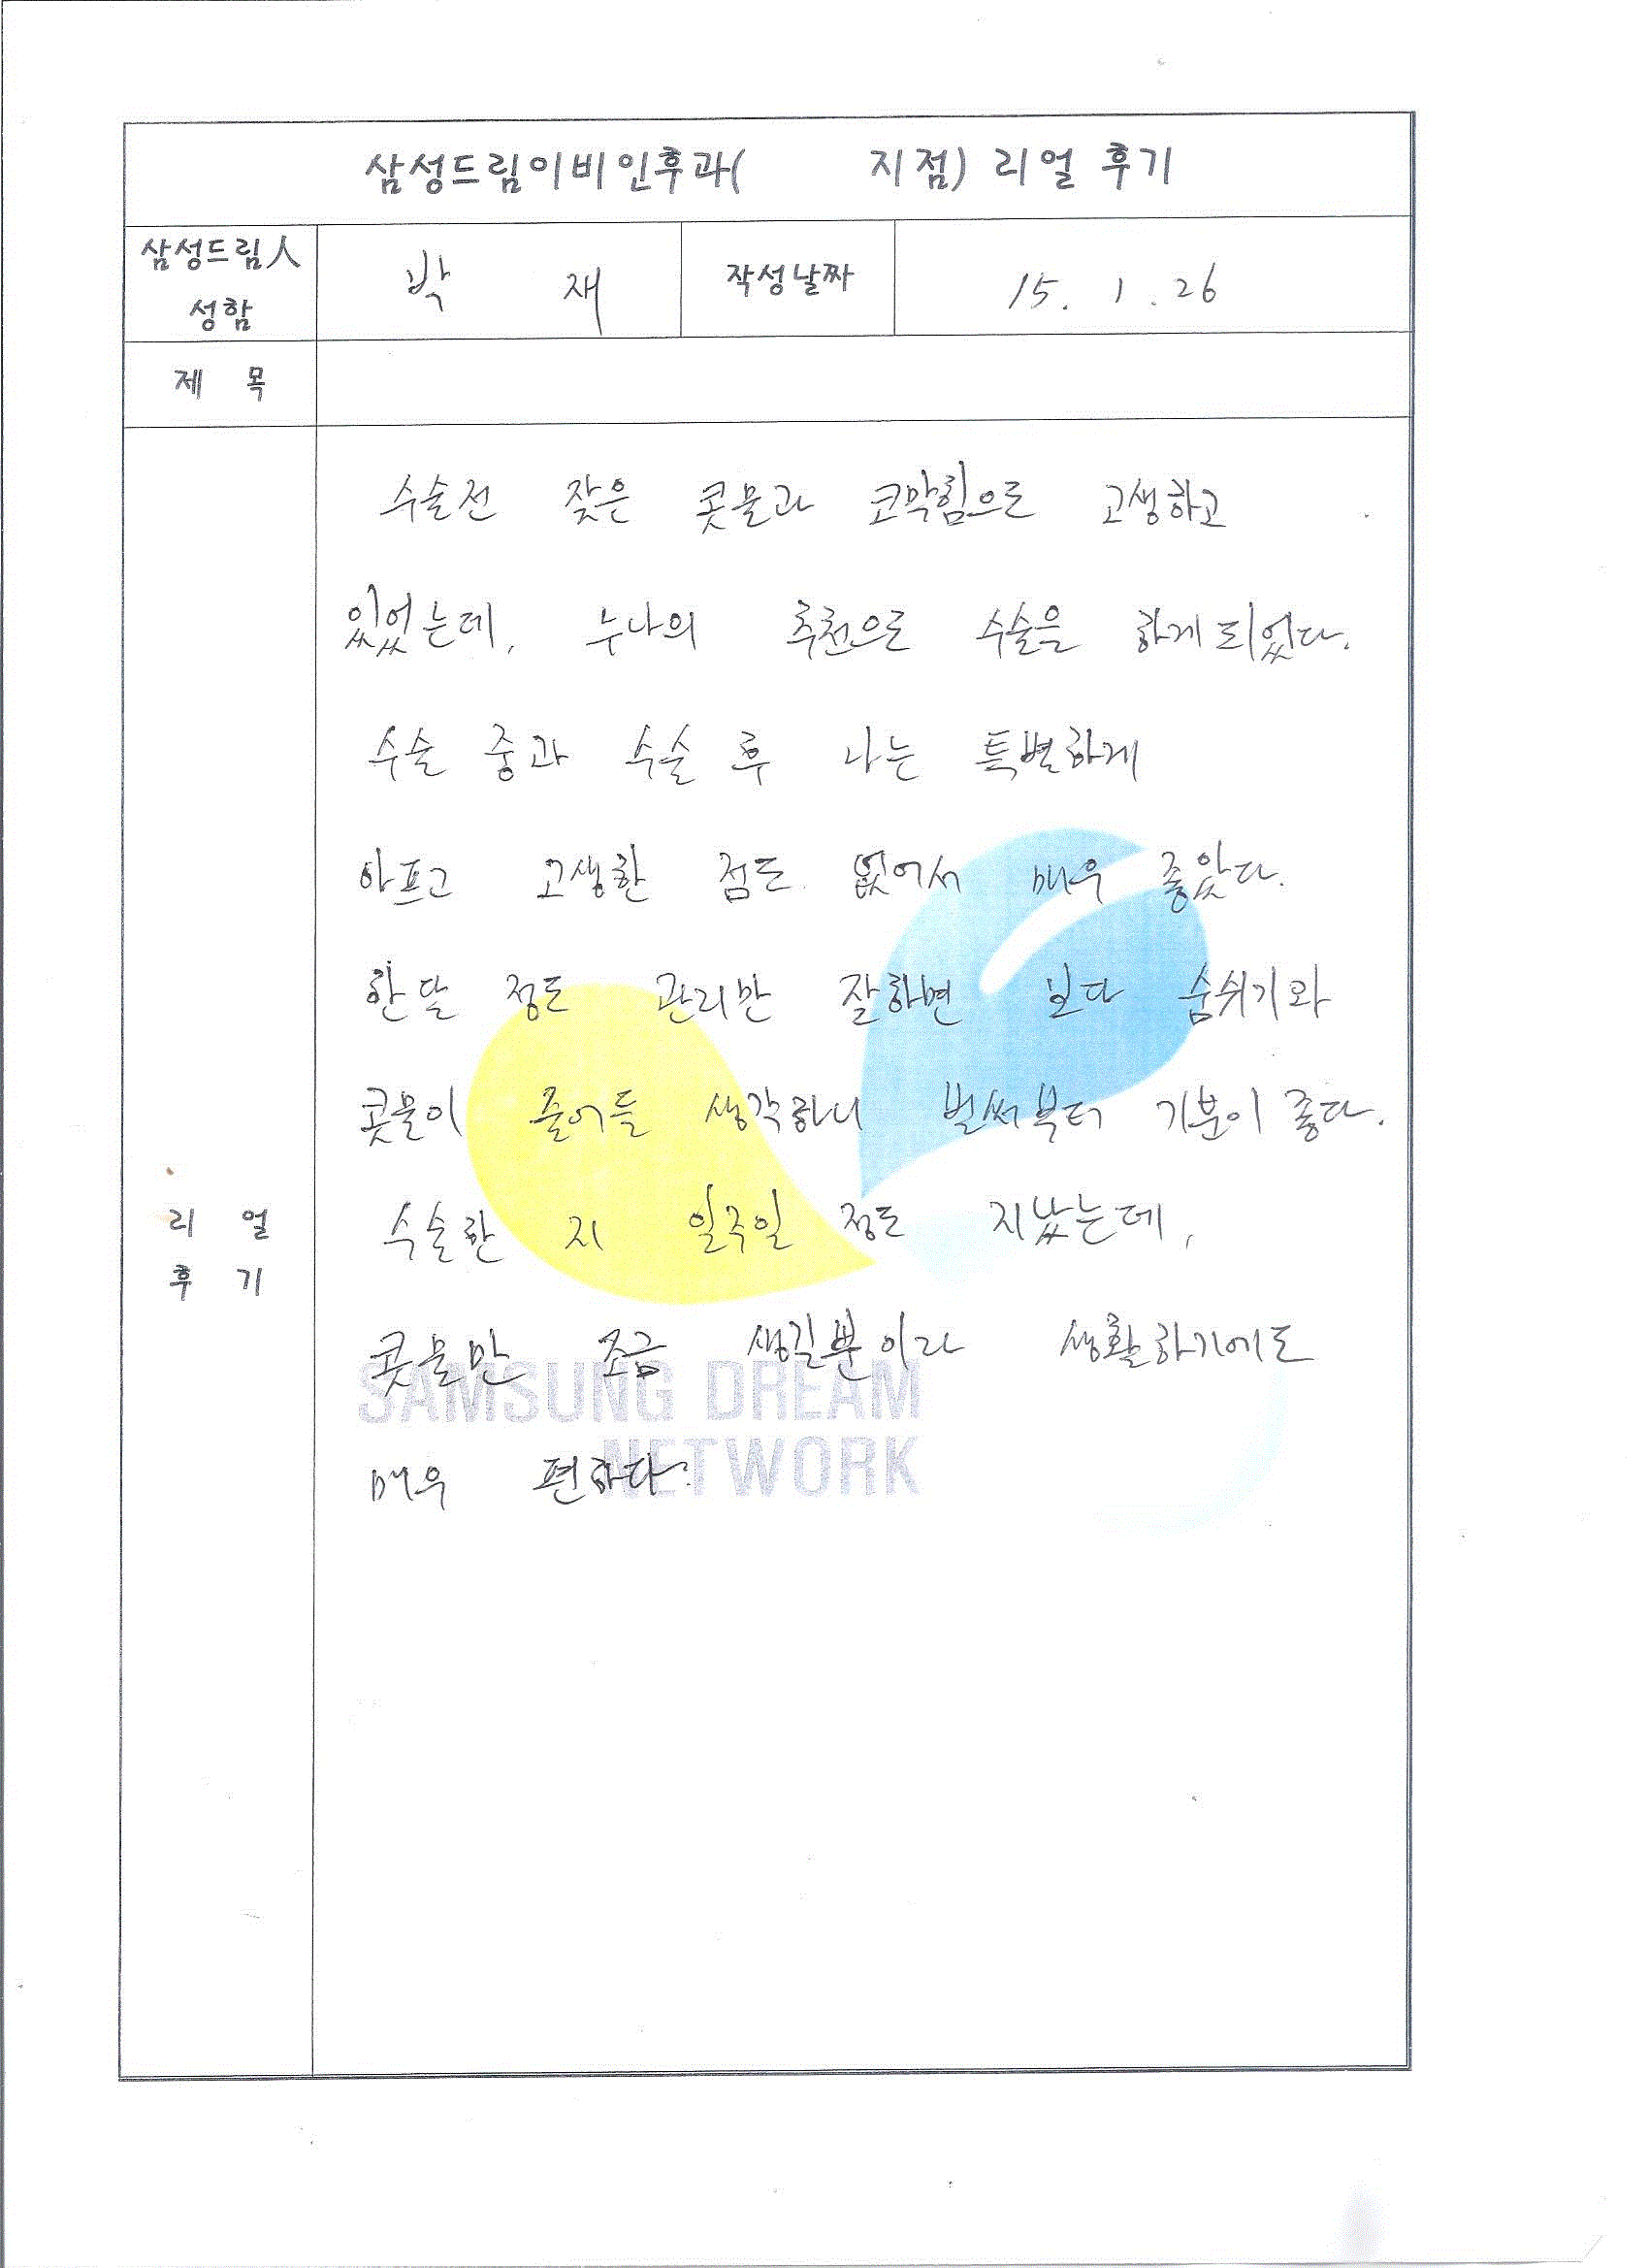 삼성드림이비인후과(      지점) 리얼 후기
삼성드림人 성함
박 재
작성날짜
15. 1. 26
제 목
수술전 잦은 콧물과 코막힘으로 고생하고
있었는데, 누나의 추천으로 수술을 하게 되었다.
수술 중과 수술 후 나는 특별하게
아프고 고생한 점도 없어서 매우 좋았다.
한달 정도 관리만 잘하면 보다 숨쉬기와
콧물이 줄어들 생각하니 벌써부터 기분이 좋다.
수술한 지 일주일 정도 지났는데,
콧물만 조금 생길뿐이라 생활하기에도
매우 편하다.
리 얼
후 기
SAMSUNG DREAM
NETWORK